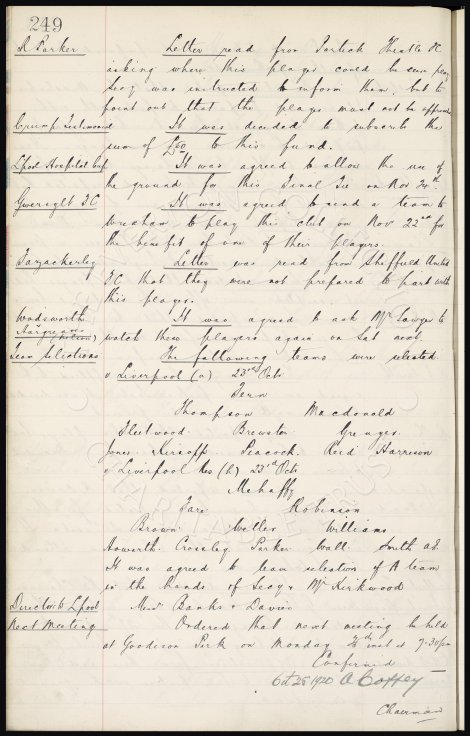 249
R Parker Letter read from Partick Thistle FC
asking where this player could be seen play
Secy was instructed to inform them, but to
point out that the player must not be approached
Crump Testimonial It was decided to subscribe the
sum of £50 to this fund.
Lpool Hospital Cup It was agreed to allow the use of
the ground for this Final Tie on Nov 24th.
Gwersyllt FC It was agreed to send a team to
Wrexham to play this club on Nov 22nd for
the benefit of one of their players.
Fazackerley Letter was read from Sheffield United
FC that they were not prepared to part with
this player.
Wadsworth It was agreed to ask Mr Sawyer to
Hargreaves (Nelson) watch these players again on Sat next.
Team Selections The following teams were selected
v Liverpool (a) 23rd Oct
Fern
Thompson Macdonald
Fleetwood Brewster Grenyer
Jones Kirsopp Peacock Reid Harrison
v Liverpool Res (h) 23rd Oct
Mehaffy
Fare Robinson
Brown Weller Williams
Howarth Crossley Parker Wall Smith
It was agreed to leave selection of A team
in the hands of Secy & Mr Kirkwood
Directors Lpool Messrs Banks & Davies
Next Meeting Ordered that next meeting be held
at Goodison Park on Monday inst at 7-30pm
Confirmed
Oct 25 1920 A Coffey
Chairman